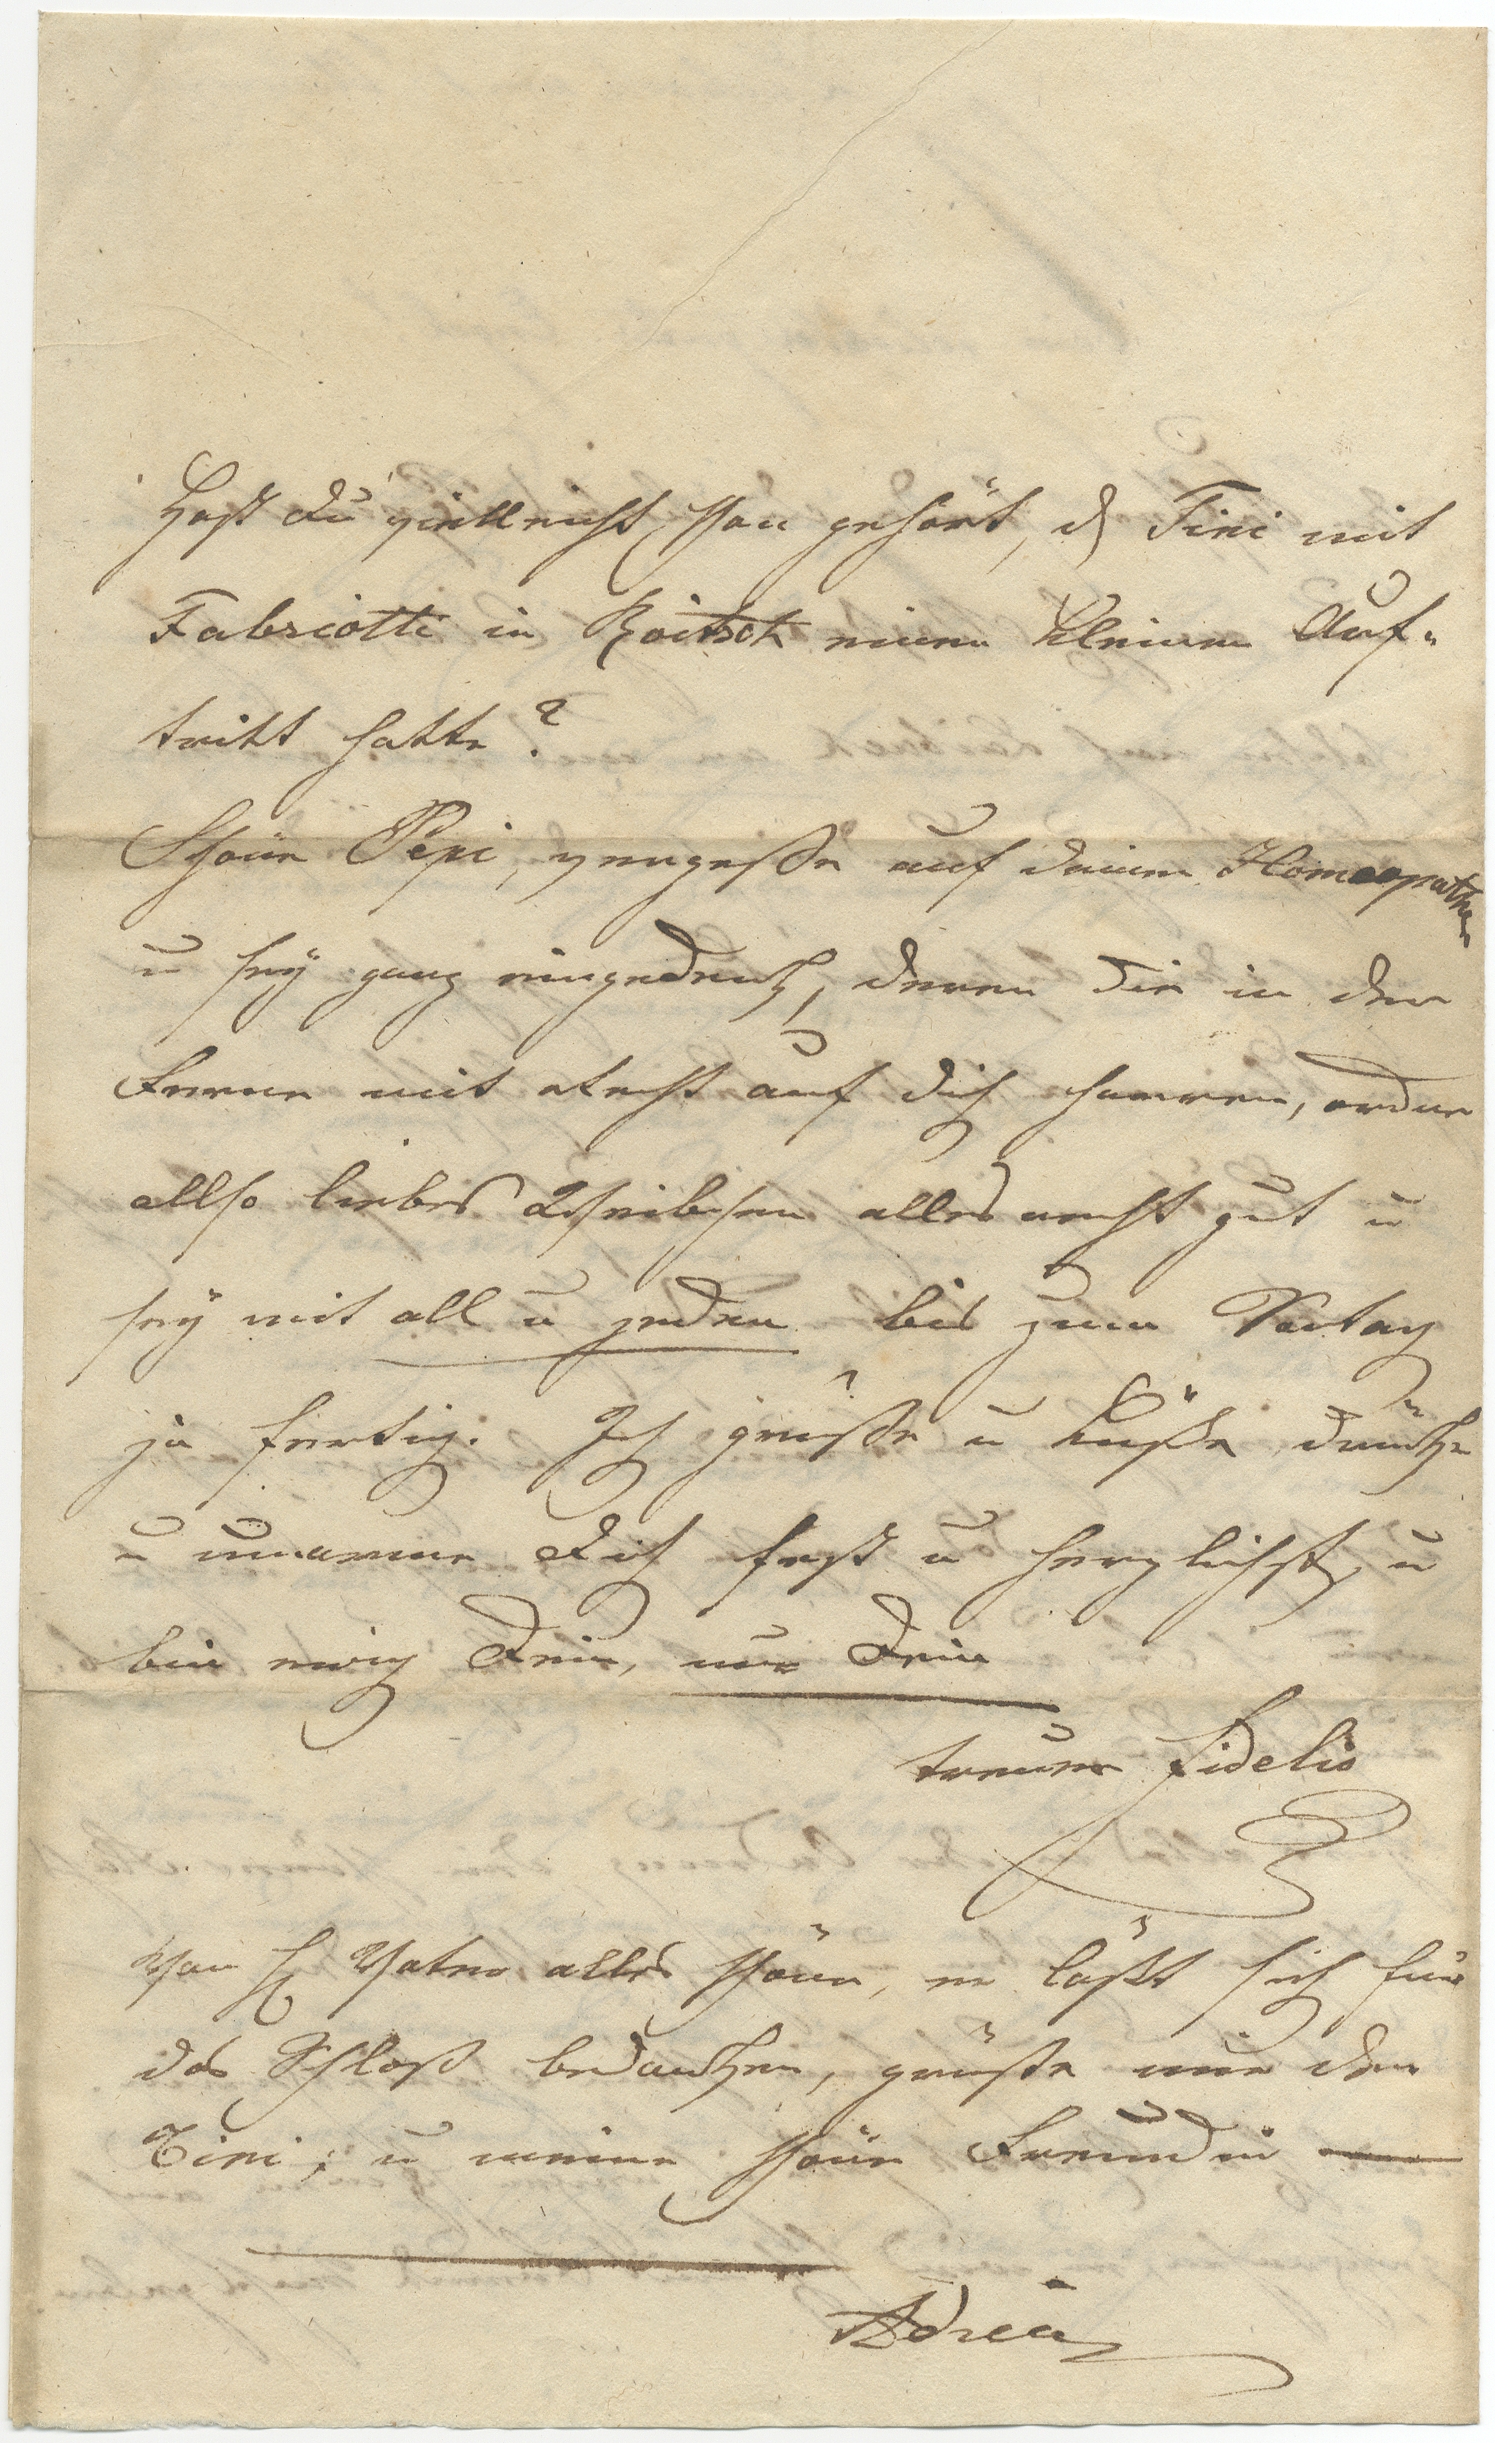 Hast du vielleicht schon gehört, d Tini mit
Fabriotti in Roitsch einen kleinen Auf-
tritt hatte?
Schöne Pepi, vergesse auf deinen Homeopathen
u sey ganz eingedenk, deren die in der
Ferne mit Recht auf dich harren, ordne
allso liebes Weibchen alles recht gut u
sey mit all u jeden bis zum Vortag
ja fertig. Ich grüße u küße drücke
u umarme Dich fest u herzlichst, u
bin ewig Dein, nur Dein
treuer Fidelis
Von H Vater alles schöne, er läßt sich für
das Schloß bedanken, grüße mir den
Tini; u meine schöne Freundin
Adrian